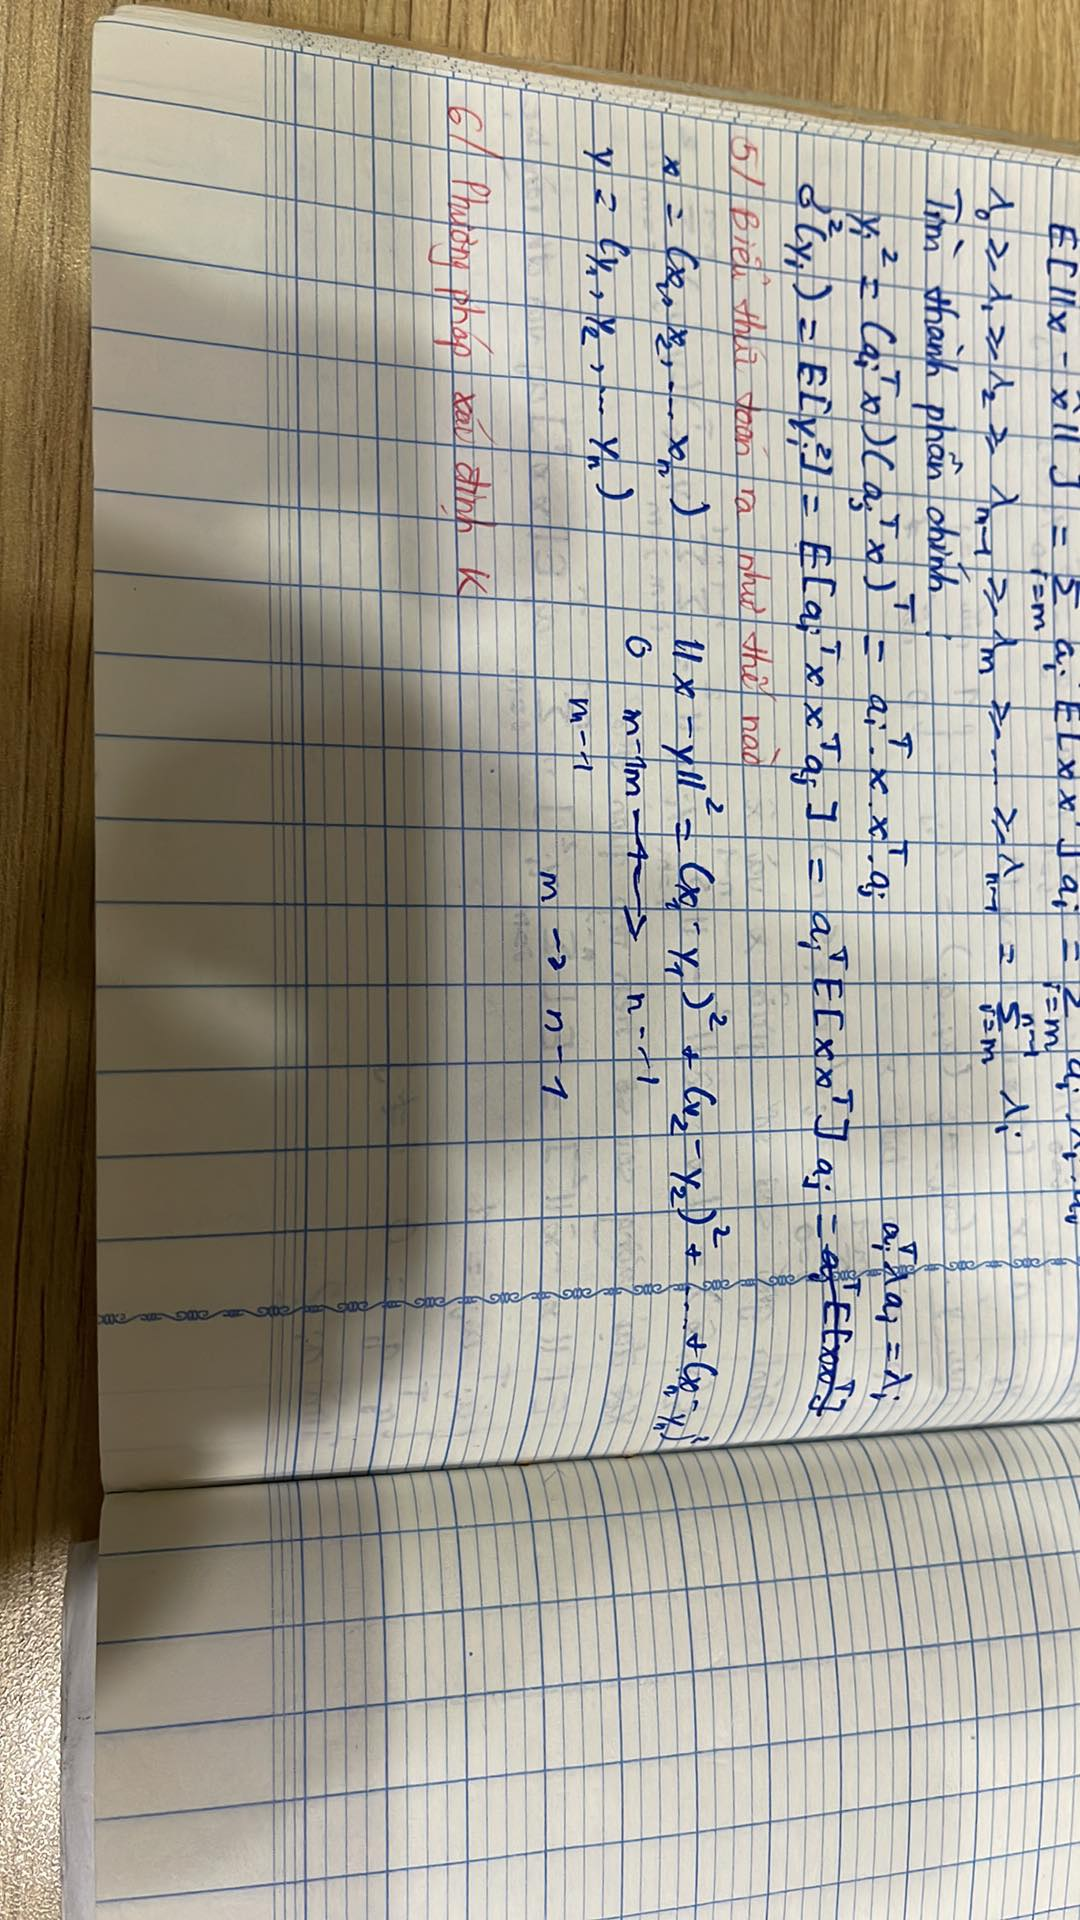 E[||x - x̂||] = Σ i=m aᵢ E[xxᵀ]aᵢ = Σ i=m aᵢ λᵢ aᵢ
λ₀ ≥ λ₁ ≥ λ₂ ≥ λₙ₋₁ ≥ λₘ ≥ ..... ≥ λₙ₋₁ = Σ i=m n-1 λᵢ
Tìm thành phần chính.
yᵢ² = (aᵢᵀx)(aⱼᵀx)ᵀ = aᵢᵀ.x.xᵀ.aⱼ aᵢᵀλaⱼ = λⱼ
σ²(yᵢ) = E[yᵢ²] = E[aᵢᵀxxᵀaⱼ] = aᵢᵀE[xxᵀ]aⱼ = aⱼᵀE[xxᵀ]
5/ Biểu thức toán ra như thế nào
x = (x₁, x₂, ... xₙ) ||x - y||² = (x₁ - y₁)² + (x₂ - y₂)² + ... + (xₙ - yₙ)²
y = (y₁, y₂, ... yₙ) 6 m-1m → n-1
m-1 m → n-1
6/ Phương pháp xác định K